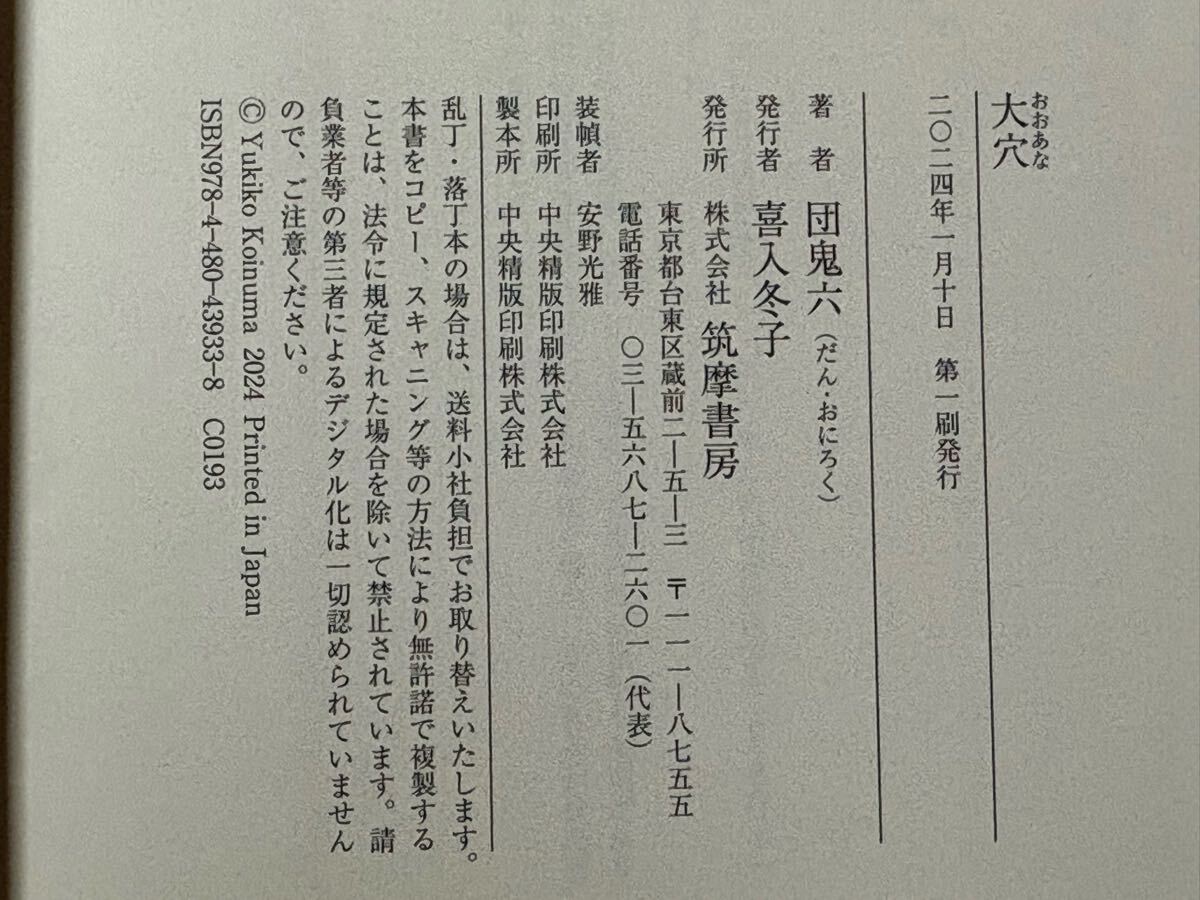 大穴
おおあな
二〇二四年一月十日　第一刷発行
著　者　団鬼六（だん・おにろく）
発行者　喜入冬子
発行所　株式会社 筑摩書房
東京都台東区蔵前二―五―三　〒一一一―八七五五
電話番号　〇三―五六八七―二六〇一（代表）
装幀者　安野光雅
印刷所　中央精版印刷株式会社
製本所　中央精版印刷株式会社
乱丁・落丁本の場合は、送料小社負担でお取り替えいたします。
本書をコピー、スキャニング等の方法により無許諾で複製する
ことは、法令に規定された場合を除いて禁止されています。請
負業者等の第三者によるデジタル化は一切認められていません
ので、ご注意ください。
© Yukiko Koinuma 2024 Printed in Japan
ISBN978-4-480-43933-8 C0193